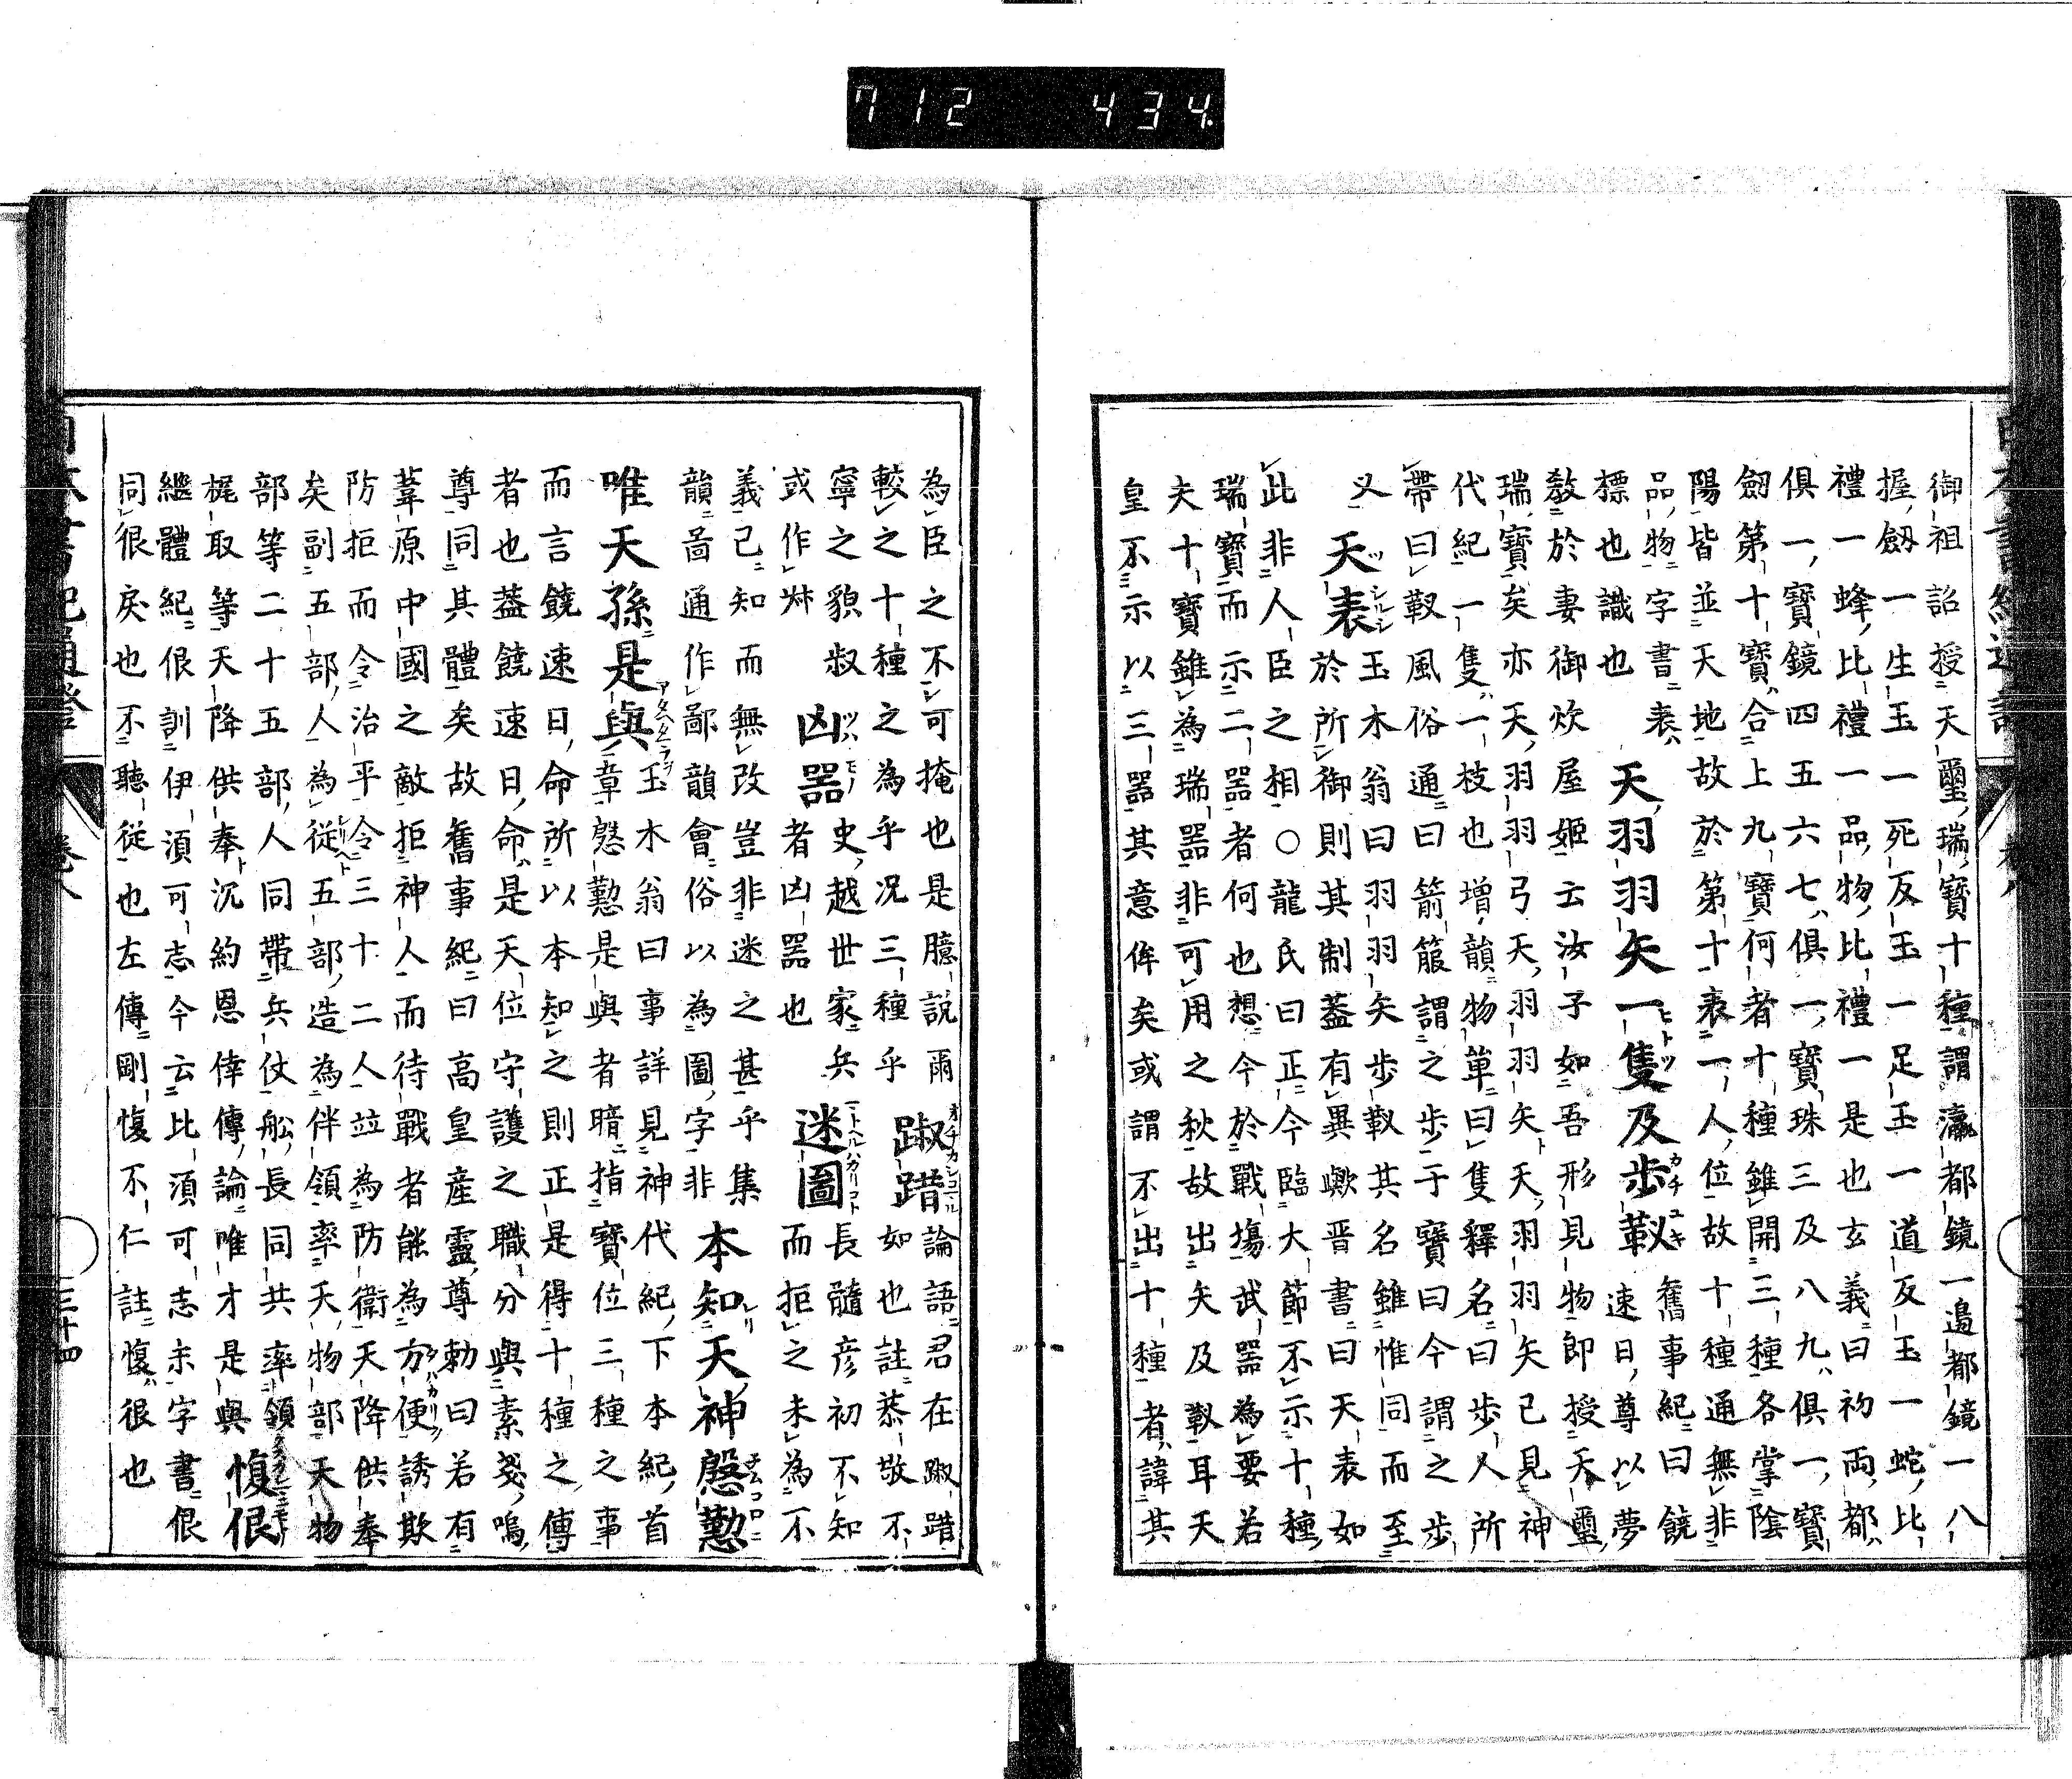 712 434
御祖詔授天璽瑞寶十種謂瀛都鏡一邉都鏡一八
握劔一生玉一死反玉一足玉一道反玉一蛇比
禮一蜂比禮一品物比禮一是也玄義曰初兩都
俱一寶鏡四五六七俱一寶珠三及八九俱一寶
劔第十寶合上九寶何者十種雖開三種各掌陰
陽皆並天地故於第十表一人位故十種通無非
品物字書表標也識也
天羽羽矢一隻及歩靫
舊事紀曰饒速日尊以夢
教於妻御炊屋姬云汝子如吾形見物即授天璽
瑞寶矣亦天羽羽弓天羽羽矢天羽羽矢已見神
代紀一隻一枝也增韻物單曰隻釋名曰歩人所
帶曰靫風俗通曰箭箙謂之歩于寶曰今謂之歩
乂
天表
玉木翁曰羽羽矢歩靫其名雖惟同而至
於所御則其制蓋有異歟晋書曰天表如
此非人臣之相○龍氏曰正今臨大節不示十種
瑞寶而示二器者何也想今於戰場武器為要若
夫十寶雖為瑞器非可用之秋故出矢及靫耳天
皇不示以三器其意侔矣或謂不出十種者諱其
為臣之不可掩也是臆說爾
踧踖
論語君在踧踖
如也註恭敬不
寧之貌叔
較之十種之為乎況三種乎
或作𡬧
凶器
史越世家兵
者凶器也
迷圖
長髓彦初不知
而拒之未為不
義已知而無改豈非迷之甚乎集
韻啚通作鄙韻會俗以為圖字非
本知天神慇懃
唯天孫是與
玉木翁曰事詳見神代紀下本紀首
章慇懃是與者暗指寶位三種之事
而言饒速日命所以本知之則正是得十種之傳
者也蓋饒速日命是天位守護之職分與素戔嗚
尊同其體矣故舊事紀曰高皇產靈尊勅曰若有
葦原中國之敵拒神人而待戰者能為方便誘欺
防拒而令治平令三十二人竝為防衛天降供奉
矣副五部人為從五部造為伴領率天物部天物
部等二十五部人同帶兵仗舩長同共率領
梶取等天降供奉沉約恩倖傳論唯才是與
愎佷
繼體紀佷訓伊湏可志今云比湏可志未字書佷
同很戾也不聽從也左傳剛愎不仁註愎很也
三十四